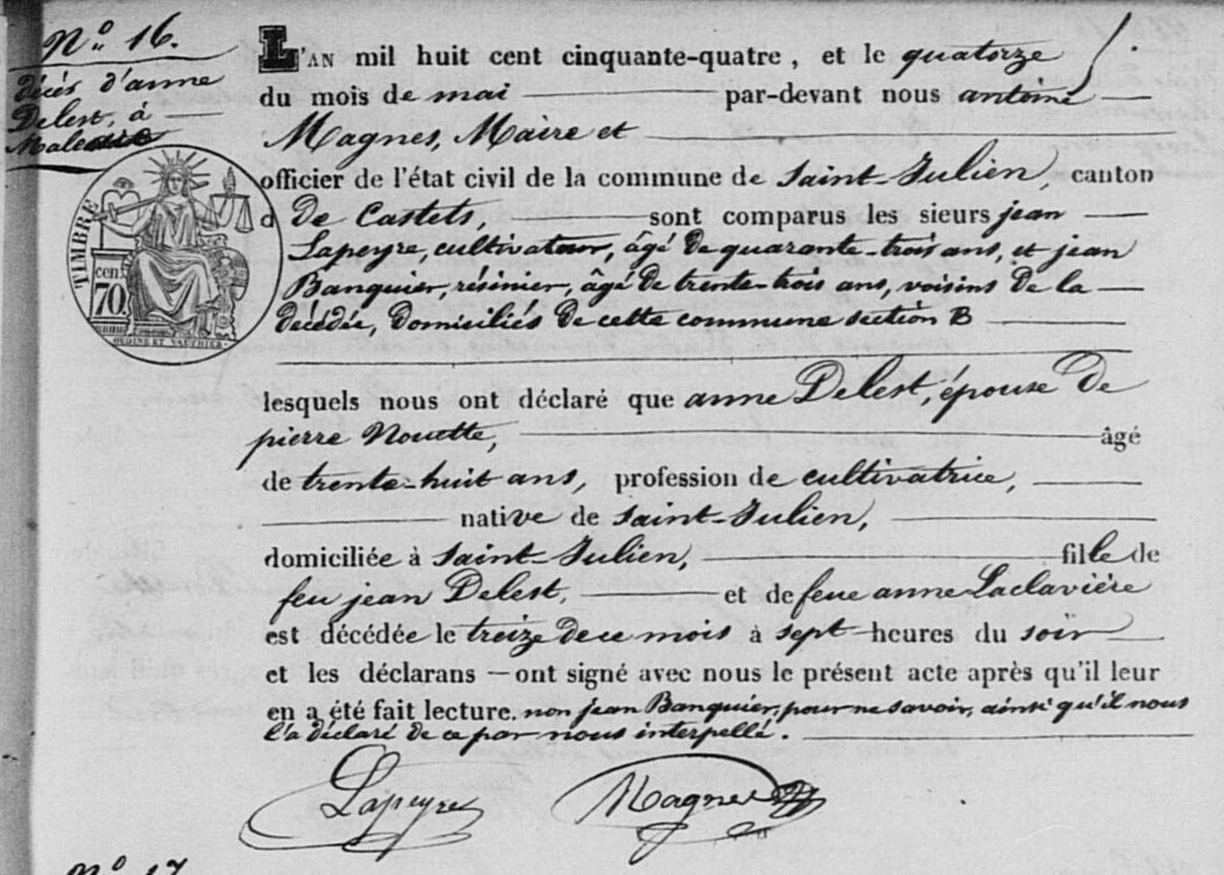 N.º 16.
décès d'anne
Delest, à
L'AN mil huit cent cinquante-quatre, et le quatorze
du mois de mai par-devant nous antoine
Magnes, Maire et
officier de l'état civil de la commune de Saint-Julien, canton
d De Castets, sont comparus les sieurs jean
Lapeyre, cultivateur, âgé de quarante-trois ans, et jean
Banquier, résinier, âgé de trente-trois ans, voisins de la
décédée, domiciliés de cette commune section B
lesquels nous ont déclaré que anne Delest, épouse de
pierre Nouette, âgé
de trente-huit ans, profession de cultivatrice,
native de Saint-Julien,
domiciliée à Saint-Julien, fille de
feu jean Delest, et de feue anne Laclavière
est décédée le treize de ce mois à sept heures du soir
et les déclarans — ont signé avec nous le présent acte après qu'il leur
en a été fait lecture. non jean Banquier, pour ne savoir, ainsi qu'il nous
l'a déclaré de ce par nous interpellé.
Lapeyre Magnes
TIMBRE
cen.
70.
OUDINÉ ET VAUTHIER.
N.º 17